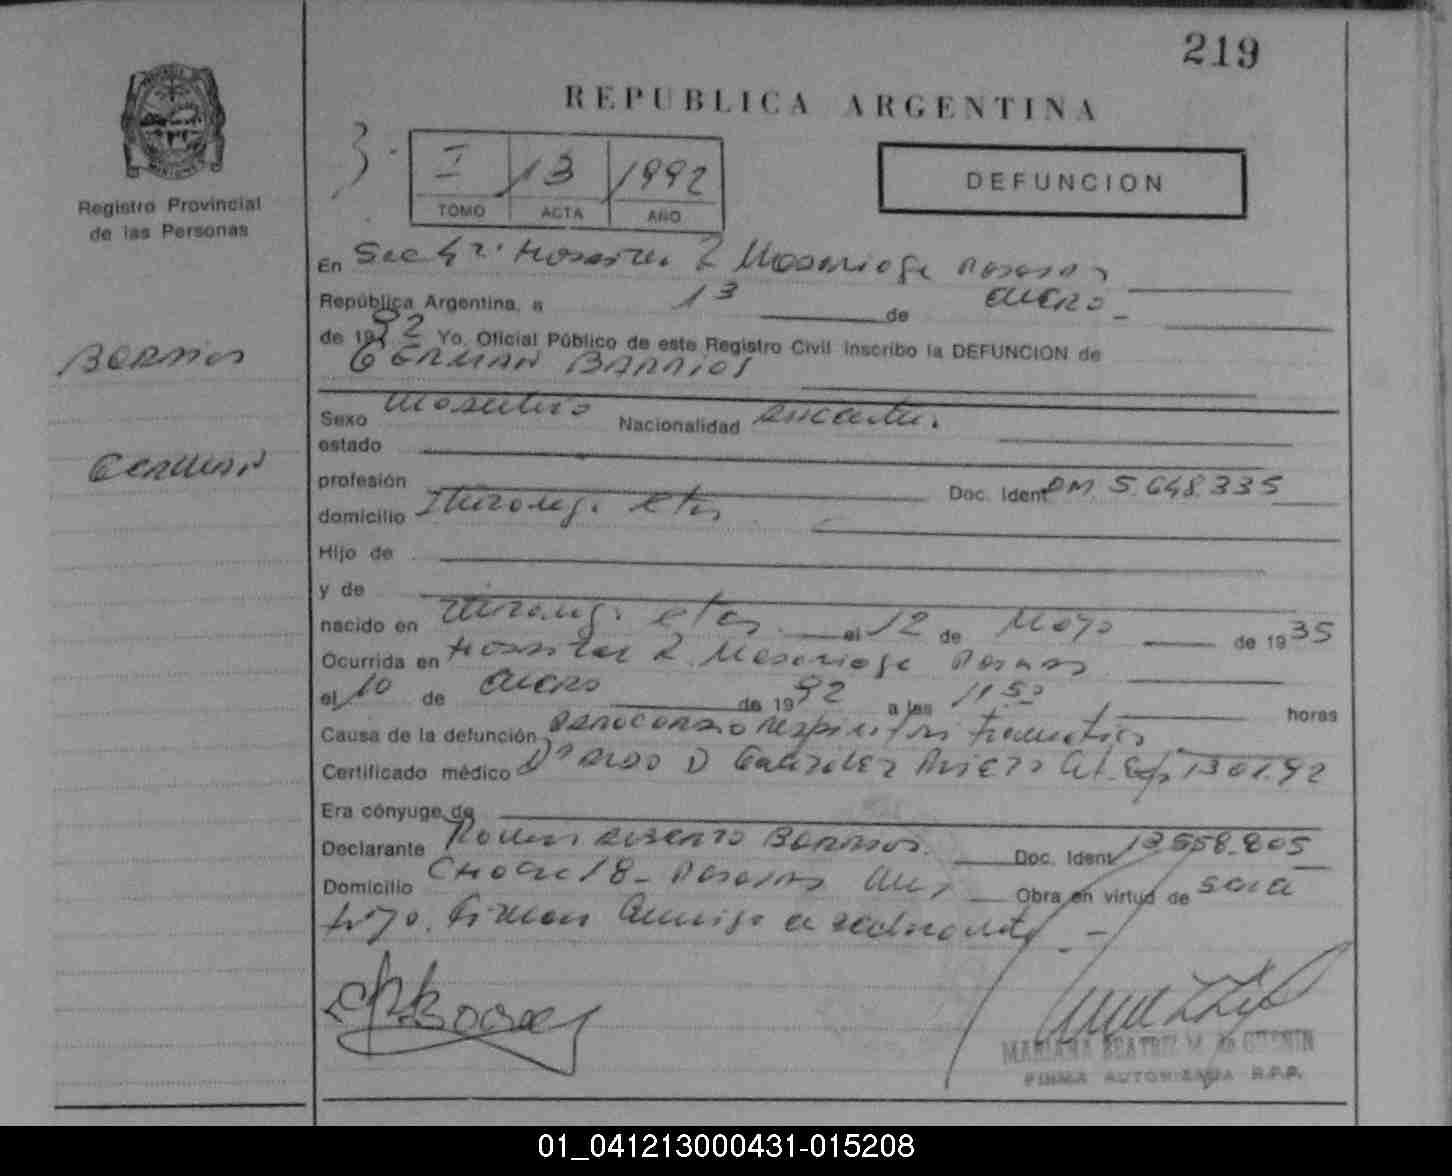 219
REPUBLICA ARGENTINA
I 13 1992
TOMO ACTA AÑO
DEFUNCION
Registro Provincial
de las Personas
En Sec 4ª Hospital R Madariaga Posadas
República Argentina, a 13 de enero
de 1992 Yo, Oficial Público de este Registro Civil inscribo la DEFUNCION de
GERMAN BARRIOS
Barrios
German
Sexo Masculino Nacionalidad
estado
profesión Doc. Ident DM 5.648.335
domicilio Ituzaingo Ctes
Hijo de
y de
nacido en Ituzaingo Ctes el 12 de Mayo de 1935
Ocurrida en Hospital R. Madariaga Posadas
el 10 de enero de 1992 a las 11.50 horas
Causa de la defunción Paro cardio respiratorio traumatico
Certificado médico Dr D Gonzalez 1301.92
Era cónyuge de
Declarante Ramon Barrios Doc. Ident 13.558.805
Domicilio 18 - Posadas Obra en virtud de ser el
hijo. Firman conmigo
MARIANA BEATRIZ M. de
FIRMA AUTORIZADA R.P.P.
01_041213000431-015208